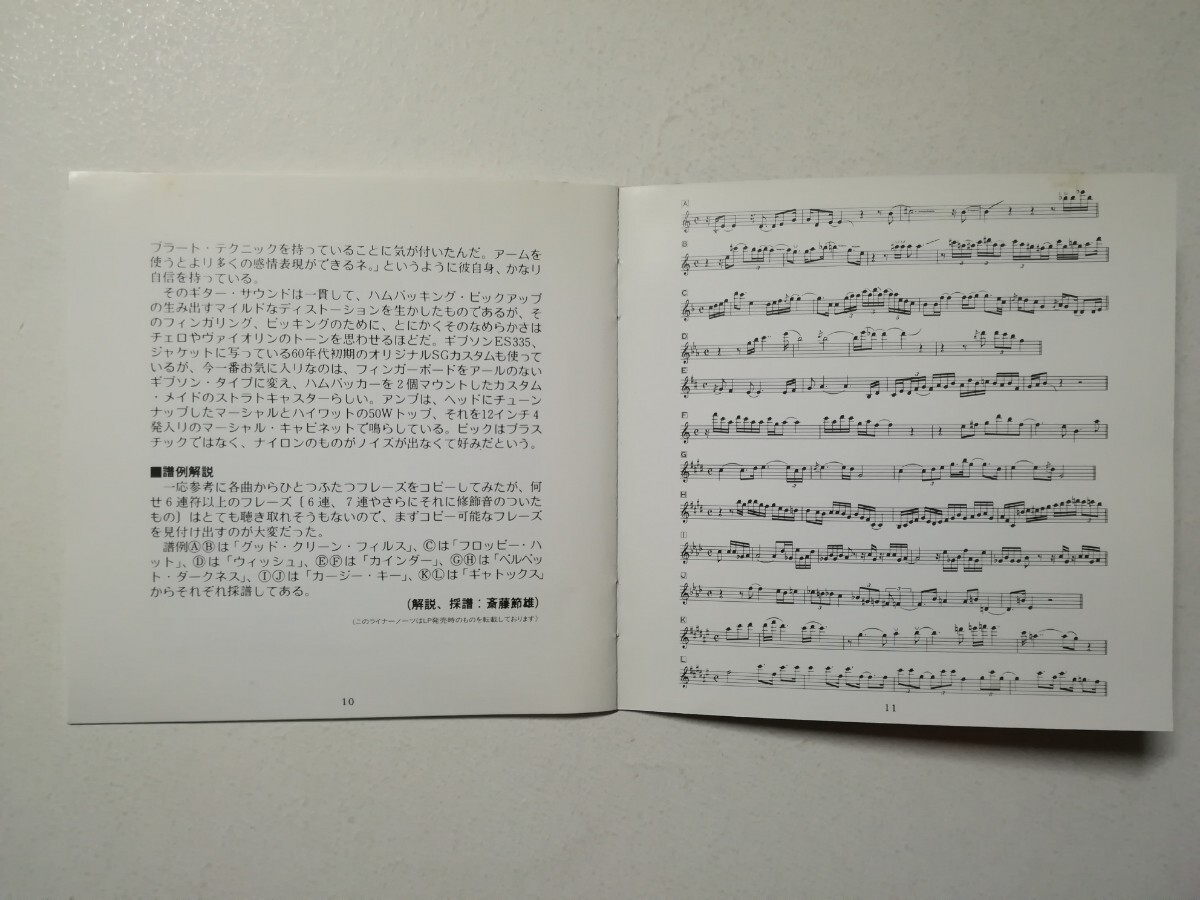 ブラート・テクニックを持っていることに気が付いたんだ。アームを
使うとより多くの感情表現ができるネ。」というように彼自身、かなり
自信を持っている。
そのギター・サウンドは一貫して、ハムバッキング・ピックアップ
の生み出すマイルドなディストーションを生かしたものであるが、そ
のフィンガリング、ピッキングのために、とにかくそのなめらかさは
チェロやヴァイオリンのトーンを思わせるほどだ。ギブソンES335、
ジャケットに写っている60年代初期のオリジナルSGカスタムも使って
いるが、今一番お気に入りなのは、フィンガーボードをアールのない
ギブソン・タイプに変え、ハムバッカーを2個マウントしたカスタム
・メイドのストラトキャスターらしい。アンプは、ヘッドにチューン
ナップしたマーシャルとハイワットの50Wトップ、それを12インチ4
発入りのマーシャル・キャビネットで鳴らしている。ピックはプラス
チックではなく、ナイロンのものがノイズが出なくて好みだという。
■譜例解説
一応参考に各曲からひとつふたつフレーズをコピーしてみたが、何
せ6連符以上のフレーズ〔6連、7連やさらにそれに修飾音のついた
もの〕はとても聴き取れそうもないので、まずコピー可能なフレーズ
を見付け出すのが大変だった。
譜例ⒶⒷは「グッド・クリーン・フィルス」、Ⓒは「フロッピー・ハ
ット」、Ⓓは「ウィッシュ」、ⒺⒻは「カインダー」、ⒼⒽは「ベルベッ
ト・ダークネス」、ⒾⒿは「カージー・キー」、ⓀⓁは「ギャトックス」
からそれぞれ採譜してある。
(解説、採譜：斎藤節雄)
(このライナーノーツはLP発売時のものを転載しております)
10
A
B
C
D
E
F
G
H
I
J
K
L
11